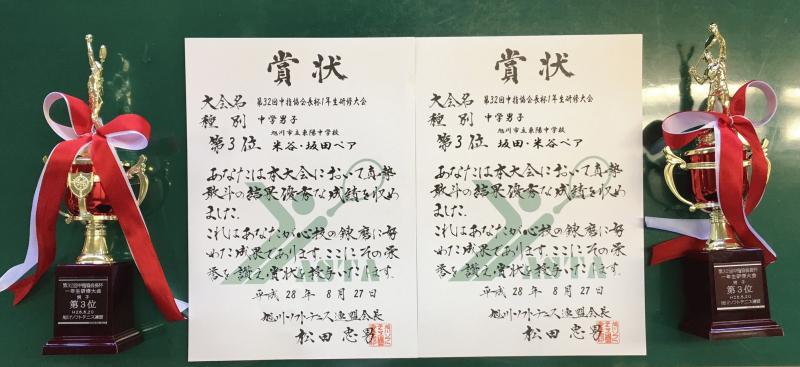 第32回中指協会長杯
一年生研修大会
男子
第3位
H28.8.20
旭川ソフトテニス連盟
賞状
大会名 第32回中指協会長杯1年生研修大会
種別 中学男子
旭川市立東陽中学校
第3位 米谷・坂田ペア
あなたは本大会において真摯
敢斗の結果優秀な成績を収め
ました。
これはあなたが心技の錬磨に努
めた成果であります。ここにその栄
誉を讃え賞状を授与いたします。
平成 28年 8月 27日
旭川ソフトテニス連盟会長
松田忠男
賞状
大会名 第32回中指協会長杯1年生研修大会
種別 中学男子
旭川市立東陽中学校
第3位 坂田・米谷ペア
あなたは本大会において真摯
敢斗の結果優秀な成績を収め
ました。
これはあなたが心技の錬磨に努
めた成果であります。ここにその栄
誉を讃え賞状を授与いたします。
平成 28年 8月 27日
旭川ソフトテニス連盟会長
松田忠男
第32回中指協会長杯
一年生研修大会
男子
第3位
H28.8.20
旭川ソフトテニス連盟